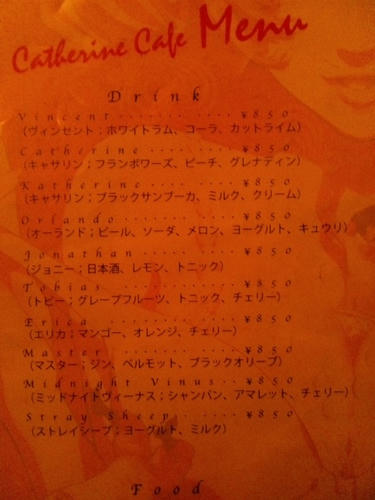 Catherine Cafe Menu
Drink
Vincent ············ ¥850
（ヴィンセント；ホワイトラム、コーラ、カットライム）
Catherine ············ ¥850
（キャサリン；フランボワーズ、ピーチ、グレナディン）
Katherine ············ ¥850
（キャサリン；ブラックサンブーカ、ミルク、クリーム）
Orlando ············ ¥850
（オーランド；ビール、ソーダ、メロン、ヨーグルト、キュウリ）
Jonathan ············ ¥850
（ジョニー；日本酒、レモン、トニック）
Tobias ············ ¥850
（トビー；グレープフルーツ、トニック、チェリー）
Erica ············ ¥850
（エリカ；マンゴー、オレンジ、チェリー）
Master ············ ¥850
（マスター；ジン、ベルモット、ブラックオリーブ）
Midnight Vinus ·· ¥850
（ミッドナイトヴィーナス；シャンパン、アマレット、チェリー）
Stray Sheep ······ ¥850
（ストレイシープ；ヨーグルト、ミルク）
Food